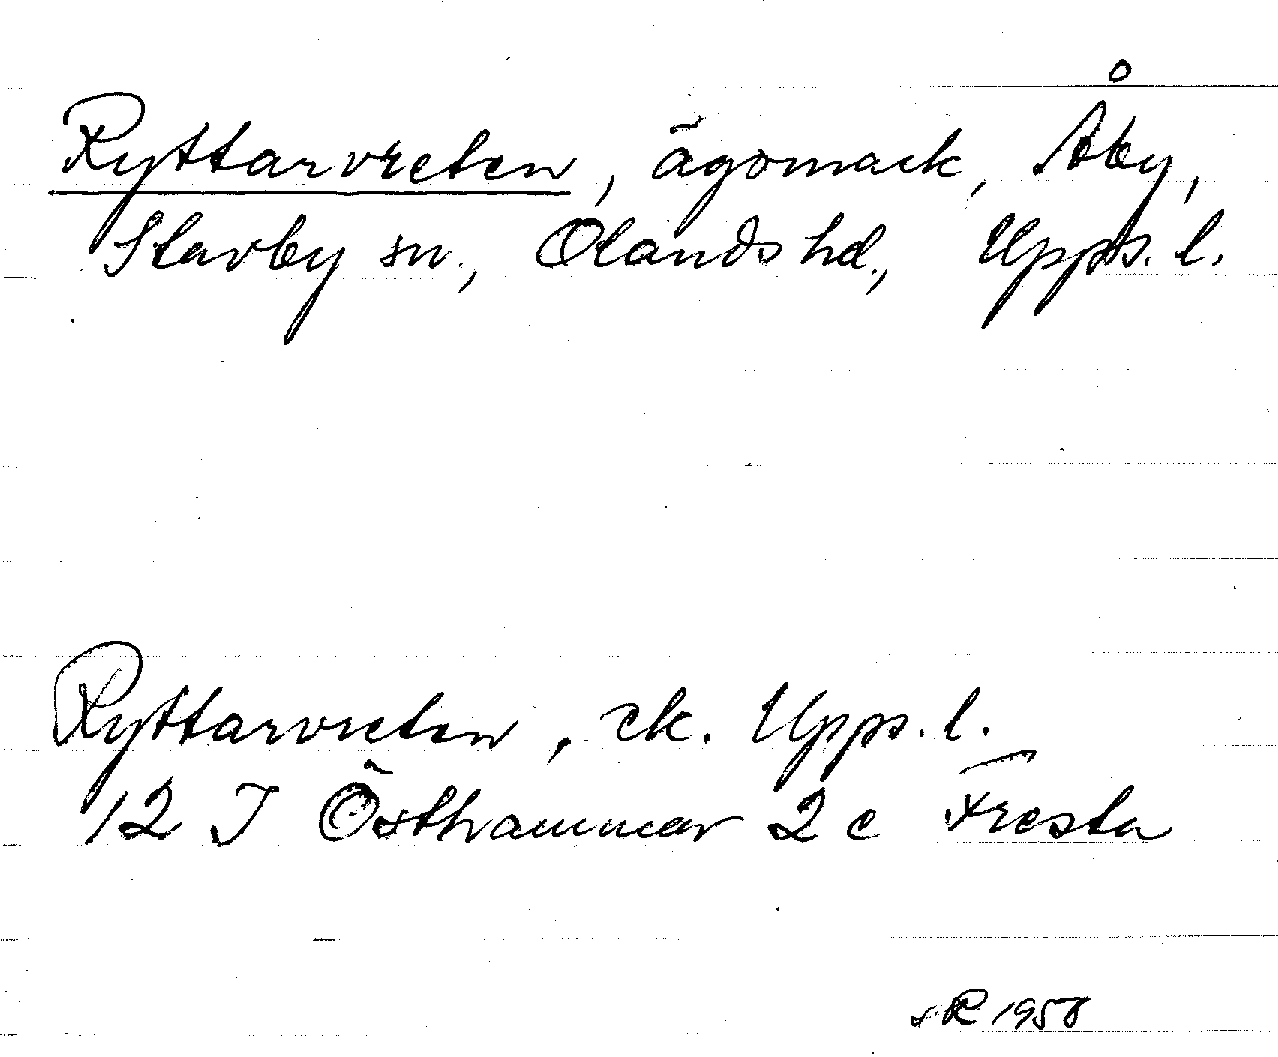 Ryttarvreten, ägomark, Åby,
Stavby sn., Olands hd., Upps. l.
Ryttarvreten, ek. Upps. l.
12 I Östhammar 2 c Fresta
R 1958